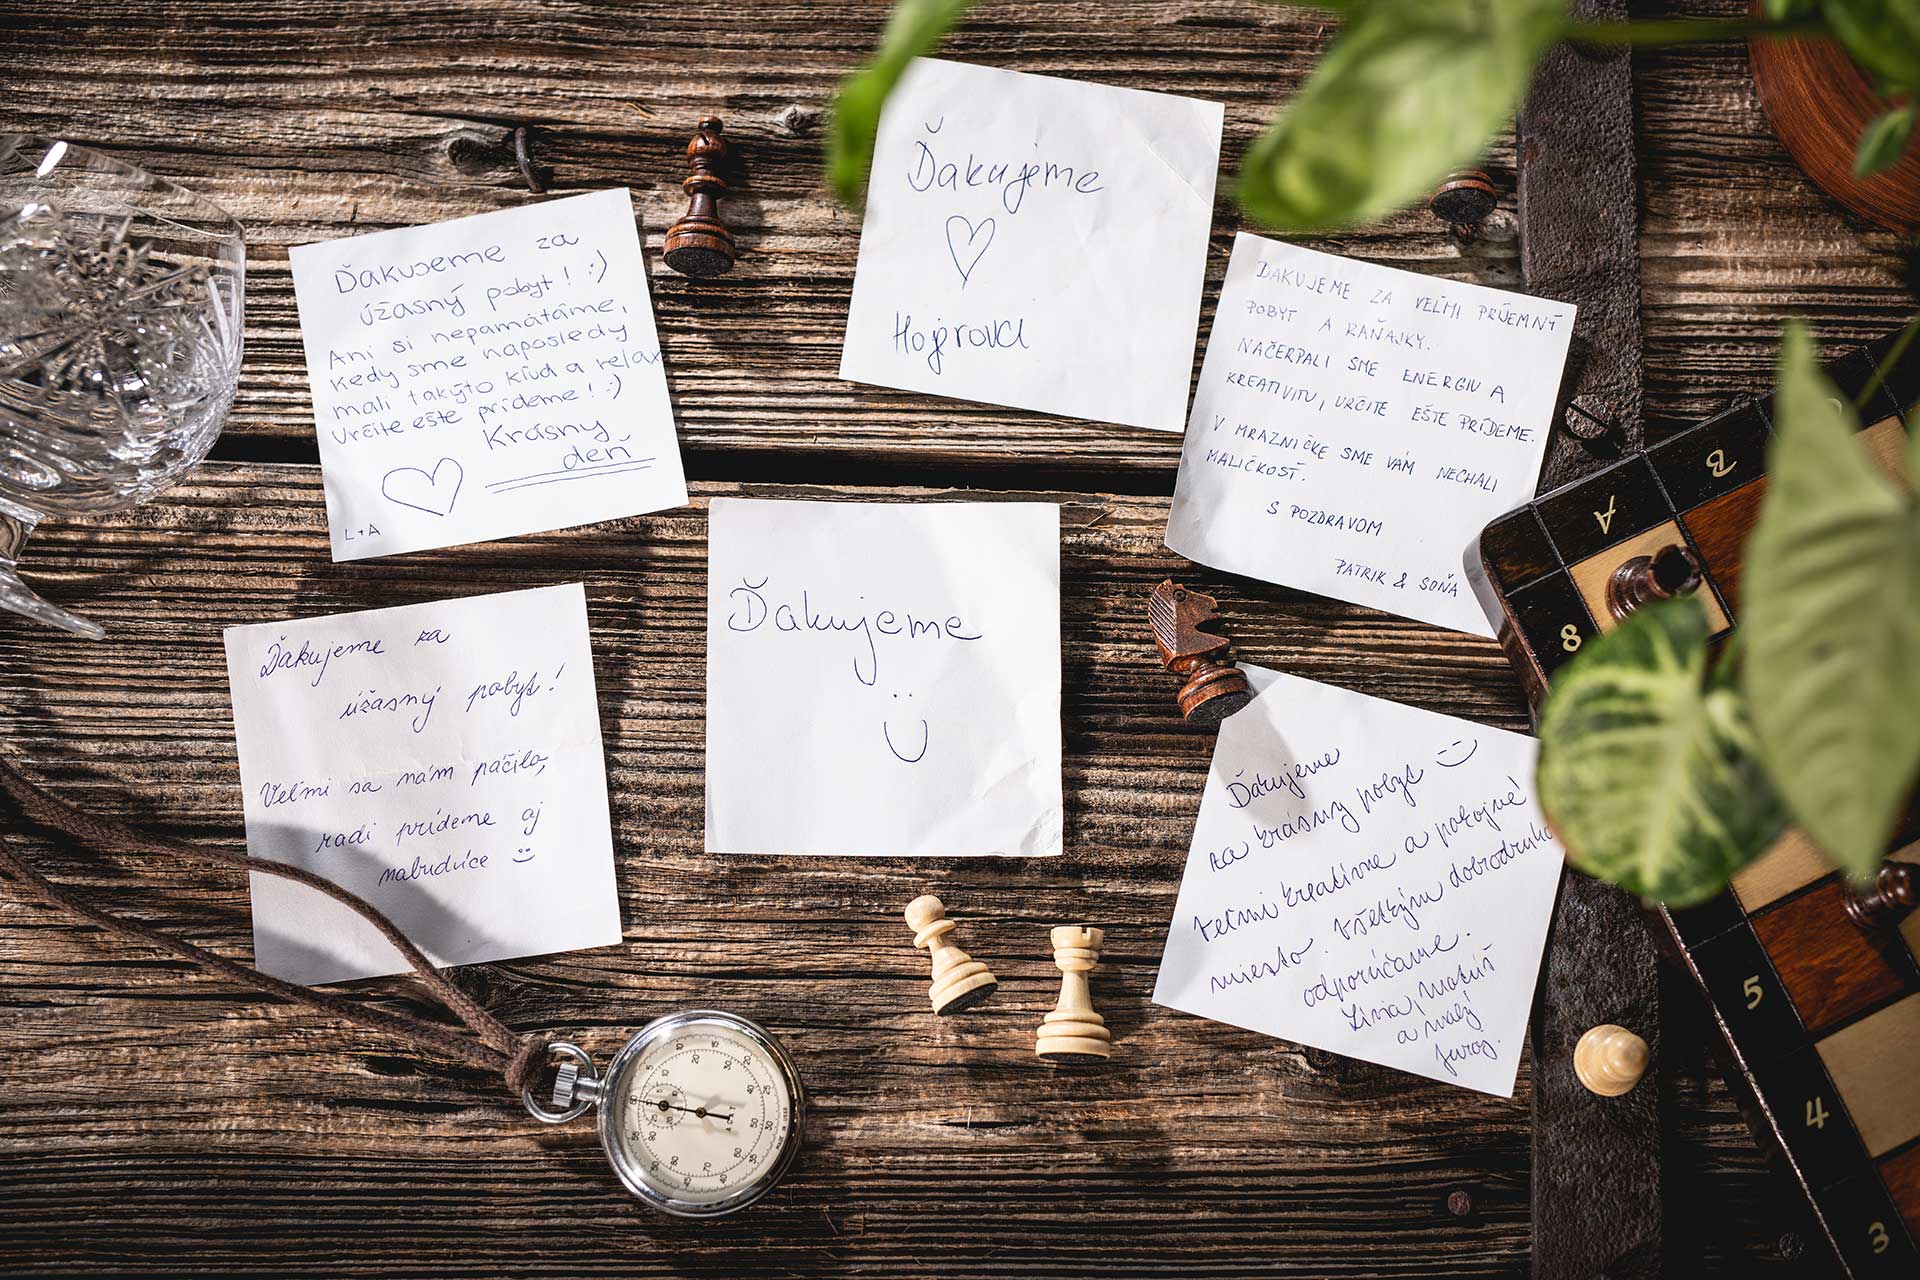 Ďakujeme za
úžasný pobyt! :)
Ani si nepamätáme,
kedy sme naposledy
mali takýto kľud a relax
Určite ešte prídeme! :)
Krásny
deň
L+A
Ďakujeme
Hojerovci
ĎAKUJEME ZA VEĽMI PRÍJEMNÝ
POBYT A RAŇAJKY.
NAČERPALI SME ENERGIU A
KREATIVITU, URČITE EŠTE PRÍDEME.
V MRAZNIČKE SME VÁM NECHALI
MALIČKOSŤ.
S POZDRAVOM
PATRIK & SOŇA
Ďakujeme za
úžasný pobyt!
Veľmi sa nám páčilo,
radi prídeme aj
nabudúce :)
Ďakujeme
Ďakujeme
za krásny pobyt :)
Veľmi kreatívne a pokojné
miesto. Všetkým dobrodruho
odporúčame.
Lívia, Matúš
a malý
Juraj.
A B
8
5
4
3